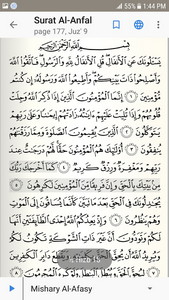 55% 1:44 PM
Surat Al-Anfal
page 177, Juz' 9
بِسْمِ ٱللَّهِ ٱلرَّحْمَٰنِ ٱلرَّحِيمِ
يَسْـَٔلُونَكَ عَنِ ٱلْأَنفَالِ قُلِ ٱلْأَنفَالُ لِلَّهِ وَٱلرَّسُولِ فَٱتَّقُوا۟ ٱللَّهَ
وَأَصْلِحُوا۟ ذَاتَ بَيْنِكُمْ وَأَطِيعُوا۟ ٱللَّهَ وَرَسُولَهُۥٓ إِن كُنتُم
مُّؤْمِنِينَ ١ إِنَّمَا ٱلْمُؤْمِنُونَ ٱلَّذِينَ إِذَا ذُكِرَ ٱللَّهُ وَجِلَتْ
قُلُوبُهُمْ وَإِذَا تُلِيَتْ عَلَيْهِمْ ءَايَٰتُهُۥ زَادَتْهُمْ إِيمَٰنًا وَعَلَىٰ رَبِّهِمْ
يَتَوَكَّلُونَ ٢ ٱلَّذِينَ يُقِيمُونَ ٱلصَّلَوٰةَ وَمِمَّا رَزَقْنَٰهُمْ
يُنفِقُونَ ٣ أُو۟لَٰٓئِكَ هُمُ ٱلْمُؤْمِنُونَ حَقًّا لَّهُمْ دَرَجَٰتٌ عِندَ
رَبِّهِمْ وَمَغْفِرَةٌ وَرِزْقٌ كَرِيمٌ ٤ كَمَآ أَخْرَجَكَ رَبُّكَ
مِنۢ بَيْتِكَ بِٱلْحَقِّ وَإِنَّ فَرِيقًا مِّنَ ٱلْمُؤْمِنِينَ لَكَٰرِهُونَ ٥
يُجَٰدِلُونَكَ فِى ٱلْحَقِّ بَعْدَ مَا تَبَيَّنَ كَأَنَّمَا يُسَاقُونَ إِلَى ٱلْمَوْتِ
وَهُمْ يَنظُرُونَ ٦ وَإِذْ يَعِدُكُمُ ٱللَّهُ إِحْدَى ٱلطَّآئِفَتَيْنِ أَنَّهَا
لَكُمْ وَتَوَدُّونَ أَنَّ غَيْرَ ذَاتِ ٱلشَّوْكَةِ تَكُونُ لَكُمْ
وَيُرِيدُ ٱللَّهُ أَن يُحِقَّ ٱلْحَقَّ بِكَلِمَٰتِهِۦ وَيَقْطَعَ دَابِرَ ٱلْكَٰفِرِينَ
Mishary Al-Afasy